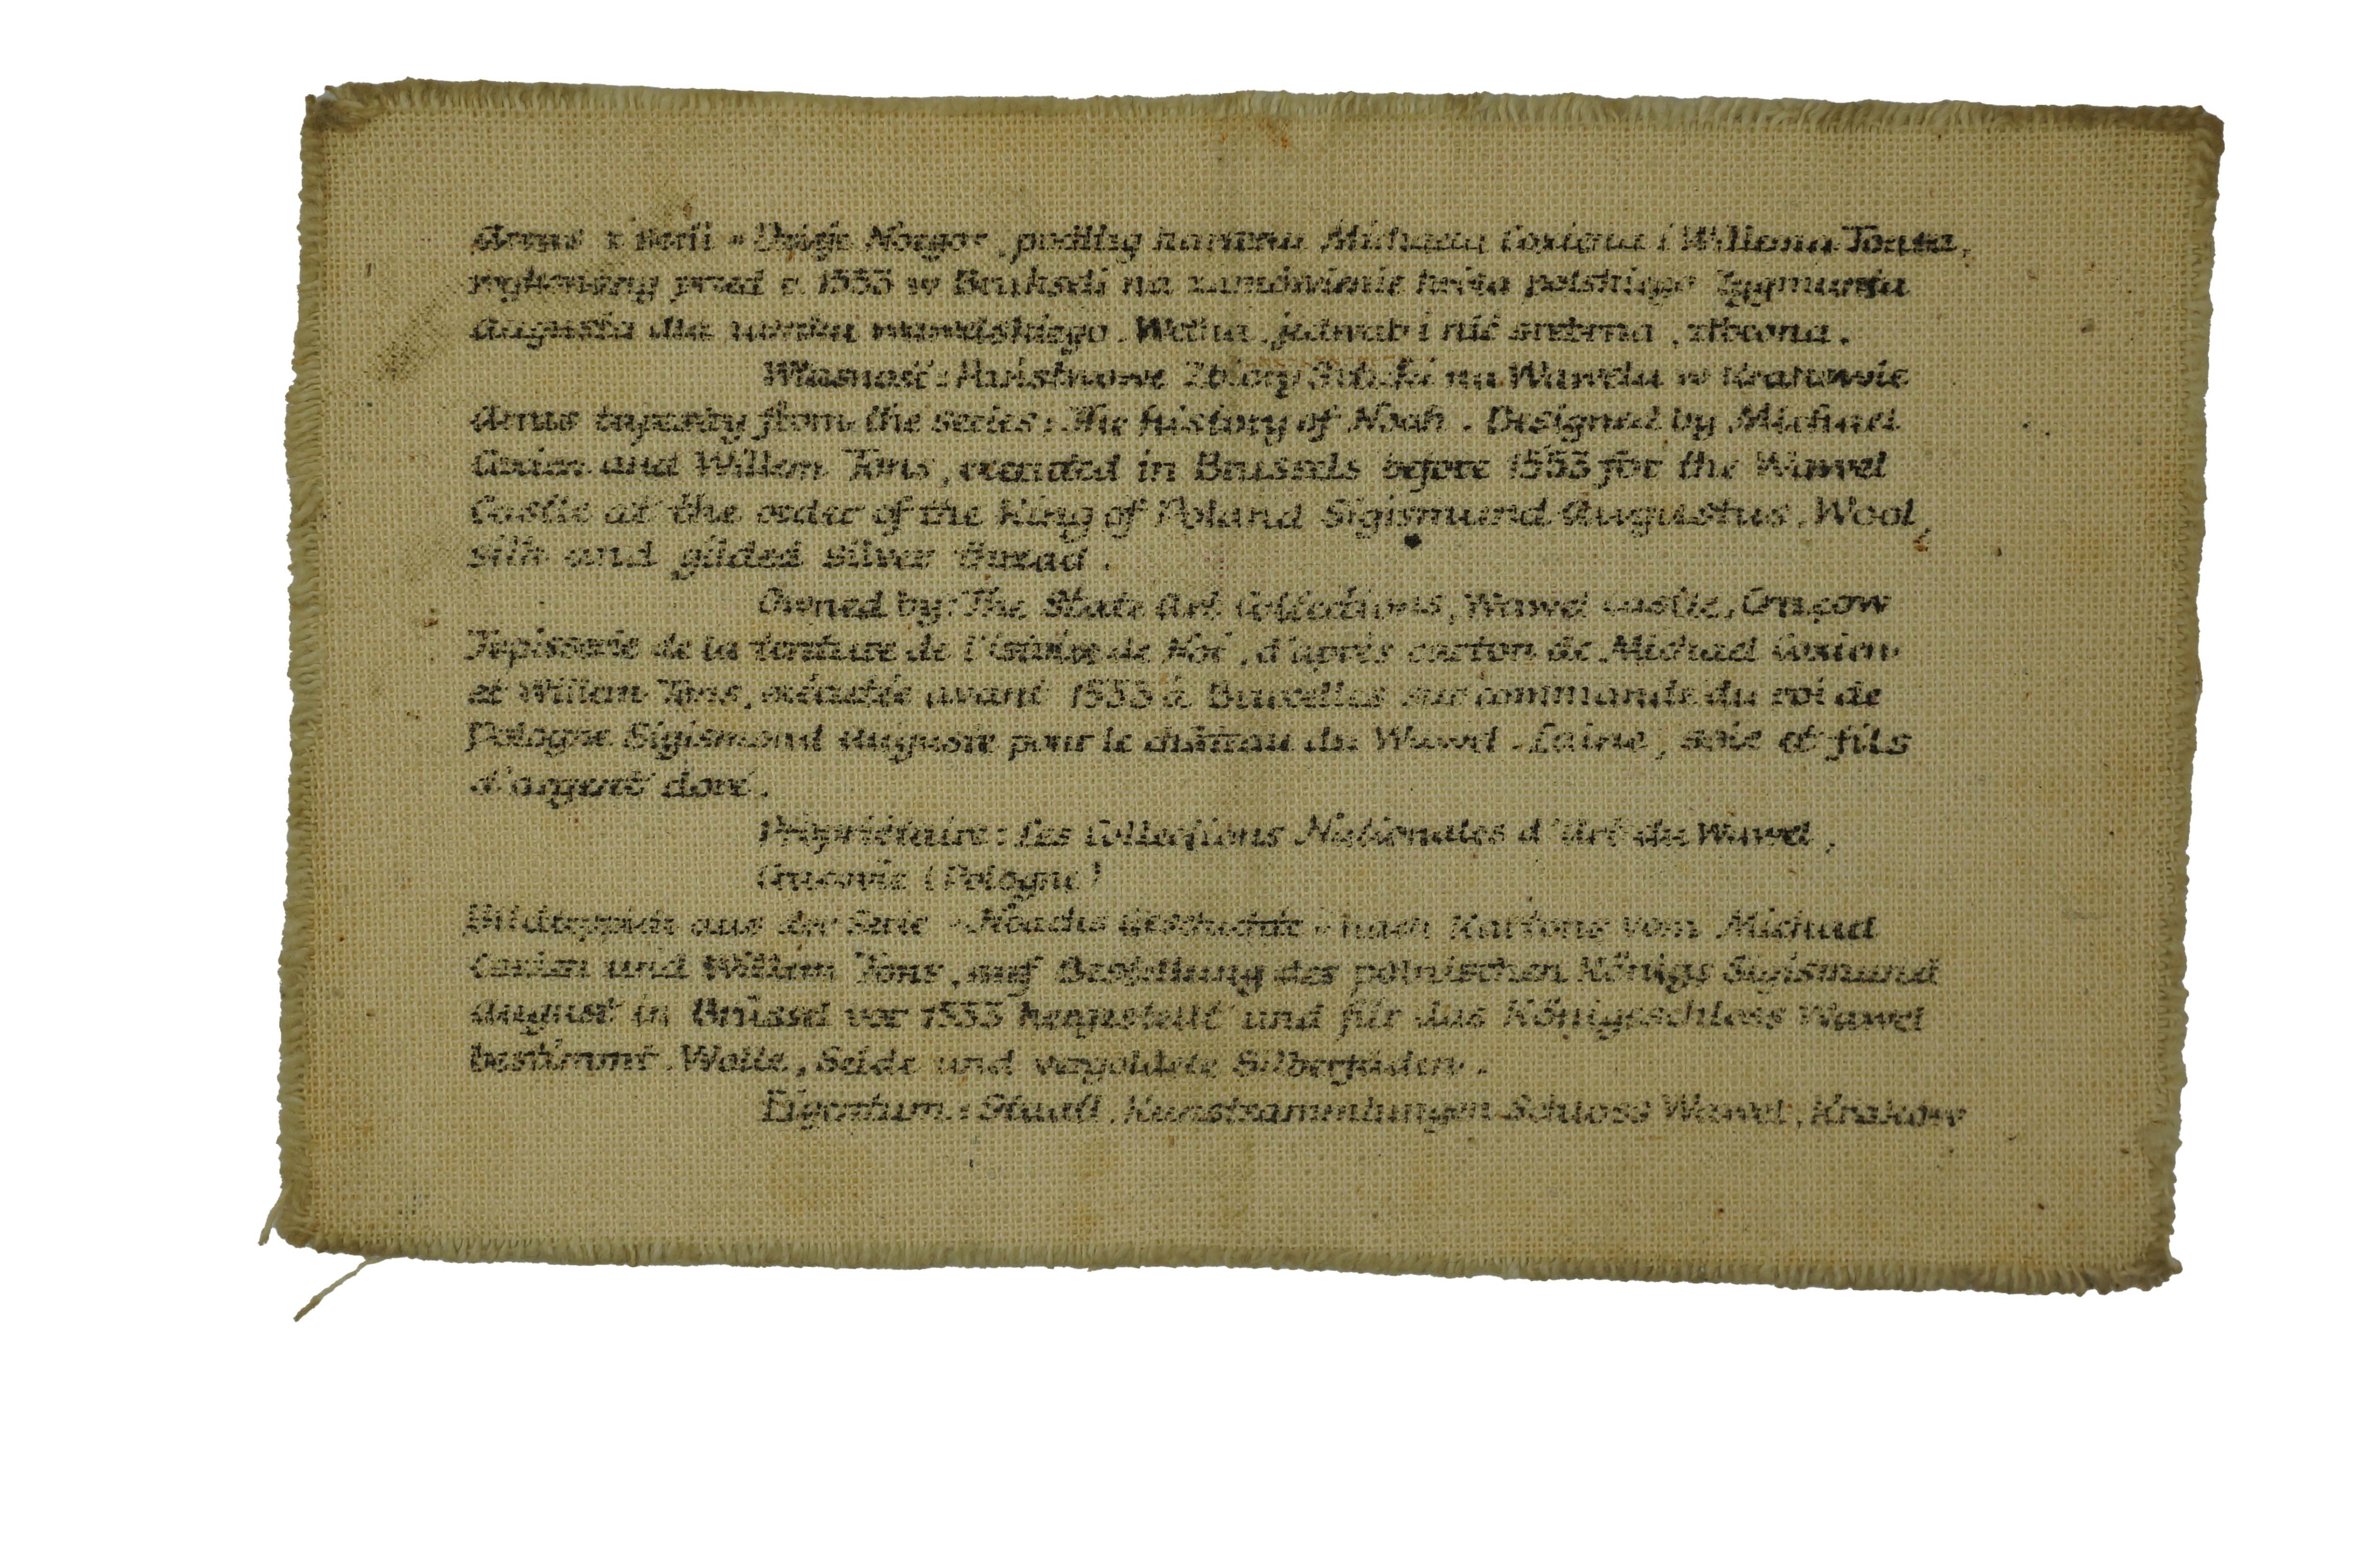 Arras z serii „Dzieje Noego”, podług kartonu Michaela Coxiena i Willema Tonsa,
wykonany przed r. 1553 w Brukseli na zamówienie króla polskiego Zygmunta
Augusta dla zamku wawelskiego. Wełna, jedwab i nić srebrna, złocona.
Własność: Państwowe Zbiory Sztuki na Wawelu w Krakowie
Arras tapestry from the series: The History of Noah. Designed by Michael
Coxien and Willem Tons, executed in Brussels before 1553 for the Wawel
Castle at the order of the King of Poland Sigismund Augustus. Wool,
silk and gilded silver thread.
Owned by: The State Art Collections, Wawel Castle, Cracow
Tapisserie de la tenture de l'istoire de Noé, d'après carton de Michael Coxien
et Willem Tons, exécutée avant 1553 à Bruxelles sur commande du roi de
Pologne Sigismond Auguste pour le château du Wawel. Laine, soie et fils
d'argent doré.
Propriétaire: Les Collections Nationales d'Art du Wawel,
Cracovie (Pologne)
Bildteppich aus der Serie „Noachs Geschichte” nach Kartons vom Michael
Coxien und Willem Tons, auf Bestellung des polnischen Königs Sigismund
August in Brüssel vor 1553 hergestellt und für das Königsschloss Wawel
bestimmt. Wolle, Seide und vergoldete Silberfäden.
Eigentum: Staatl. Kunstsammlungen Schloss Wawel, Krakow